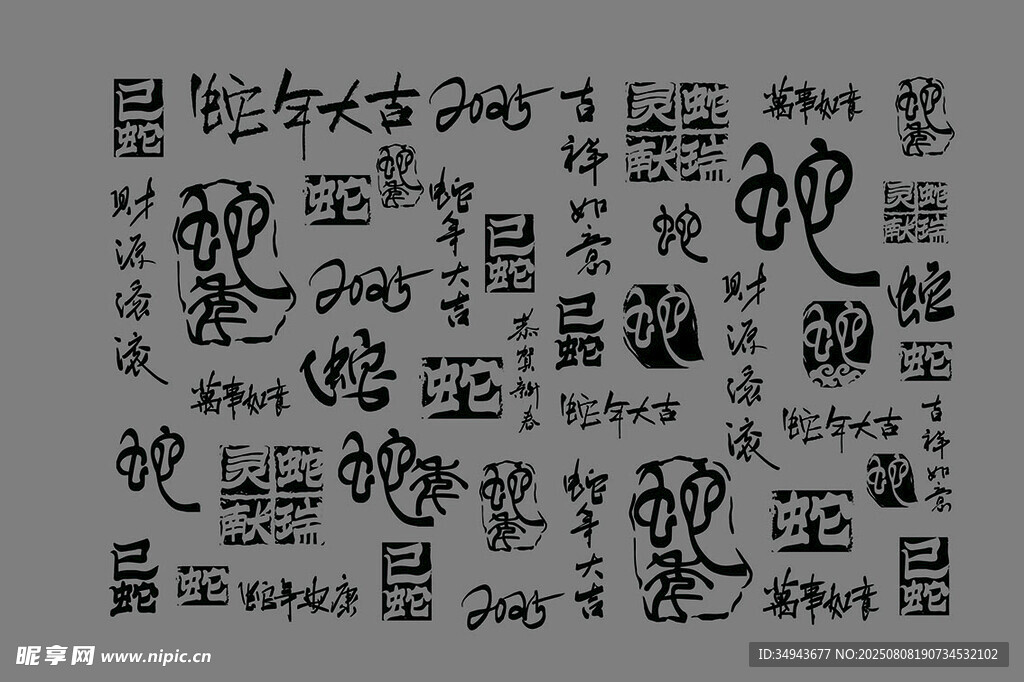 巳蛇
蛇年大吉
2025
吉祥如意
灵蛇献瑞
萬事如意
蛇年
財源滚滚
蛇年
蛇
蛇年
蛇年大吉
巳蛇
蛇
蛇
灵蛇献瑞
2025
恭贺新春
巳蛇
蛇
財源滚滚
蛇年
蛇
蛇
蛇
蛇
萬事如意
蛇年大吉
蛇年大吉
吉祥如意
蛇
灵蛇献瑞
蛇年
蛇年
蛇年大吉
蛇年
蛇
蛇
巳蛇
蛇
蛇年安康
巳蛇
2025
萬事如意
巳蛇
昵享网 www.nipic.cn
ID:34943677 NO:20250808190734532102